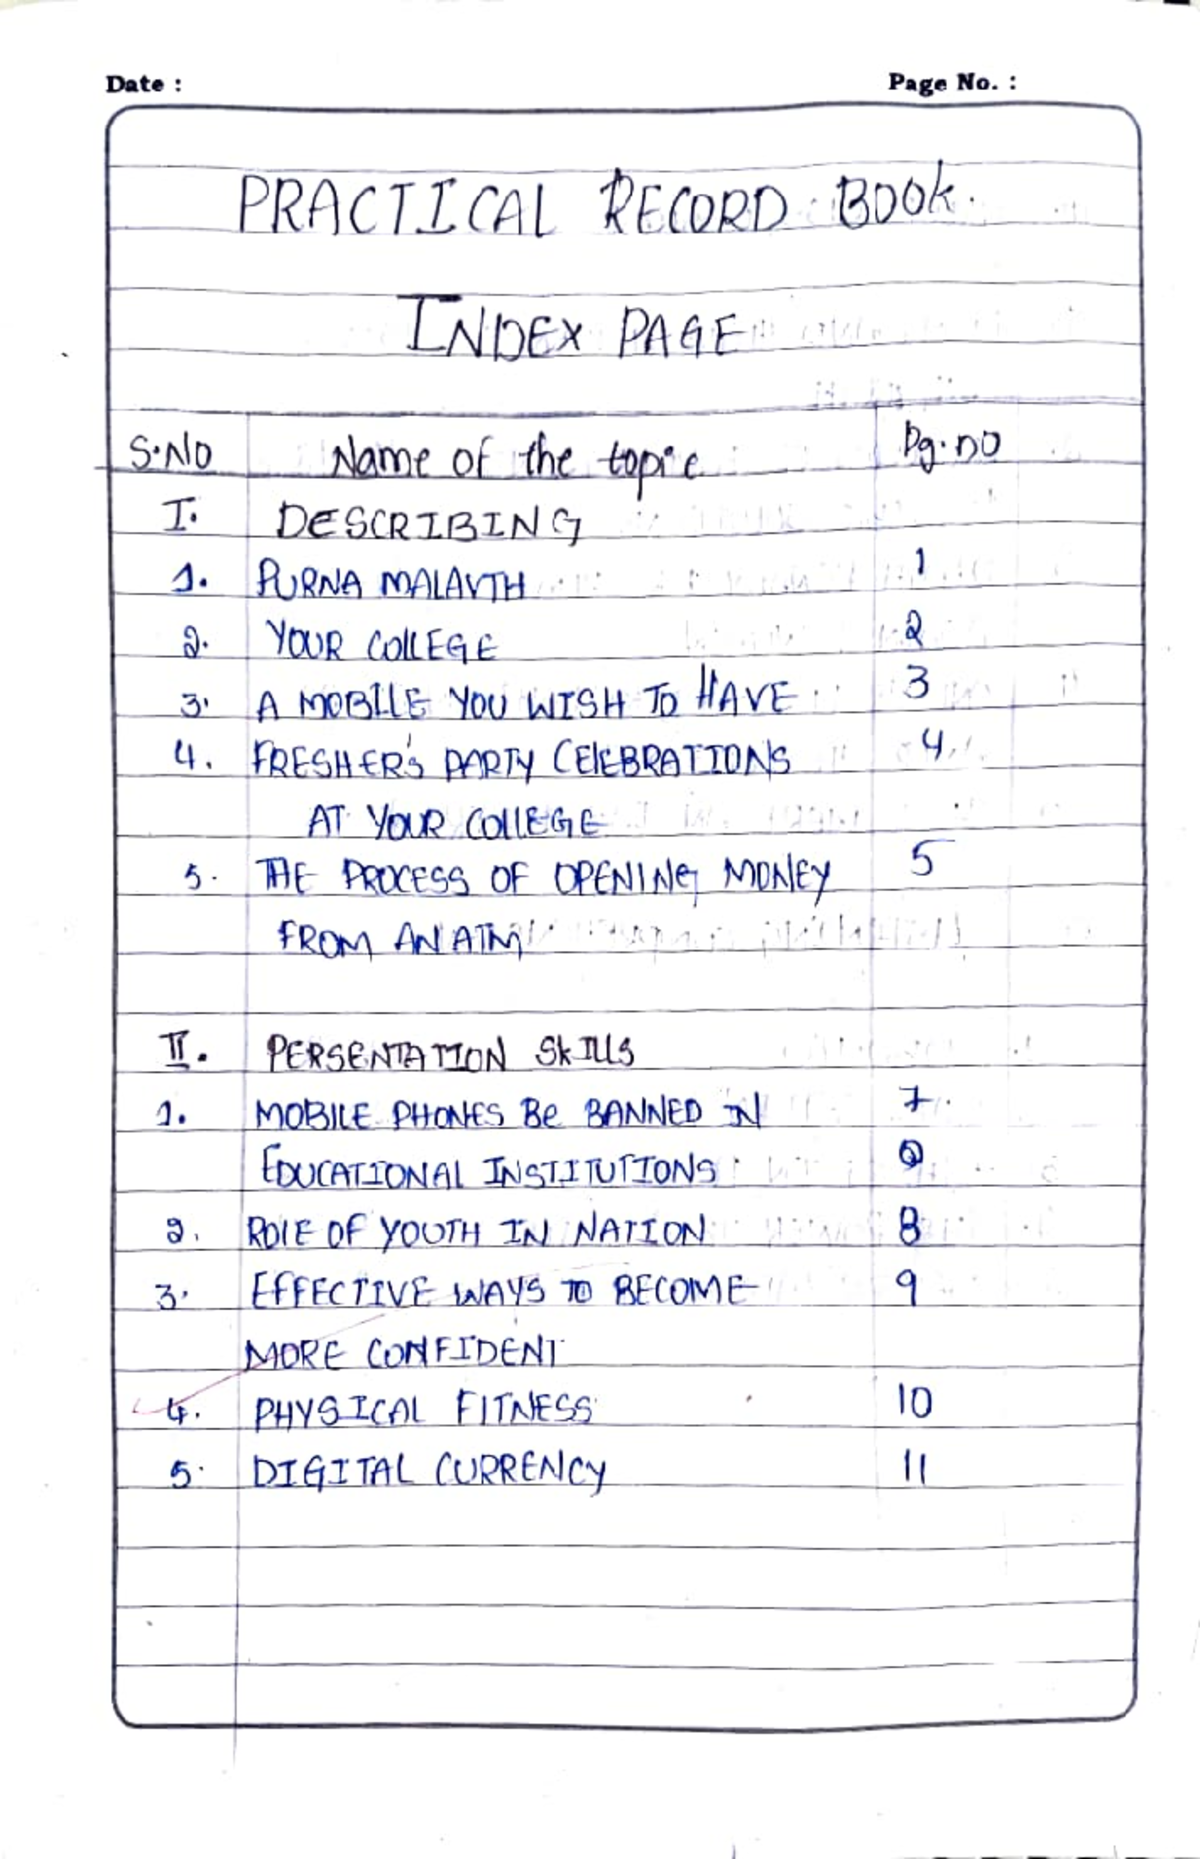 Date :
Page No. :
PRACTICAL RECORD BOOK.
INDEX PAGE
S.NO Name of the topic Pg.no
I. DESCRIBING
1. PURNA MALAVTH 1
2. YOUR COLLEGE 2
3. A MOBILE YOU WISH TO HAVE 3
4. FRESHER'S PARTY CELEBRATIONS 4
AT YOUR COLLEGE
5. THE PROCESS OF OPENING MONEY 5
FROM AN ATM
II. PERSENTATION SKILLS
1. MOBILE PHONES BE BANNED IN 7
EDUCATIONAL INSTITUTIONS
2. ROLE OF YOUTH IN NATION 8
3. EFFECTIVE WAYS TO BECOME 9
MORE CONFIDENT
4. PHYSICAL FITNESS 10
5. DIGITAL CURRENCY 11